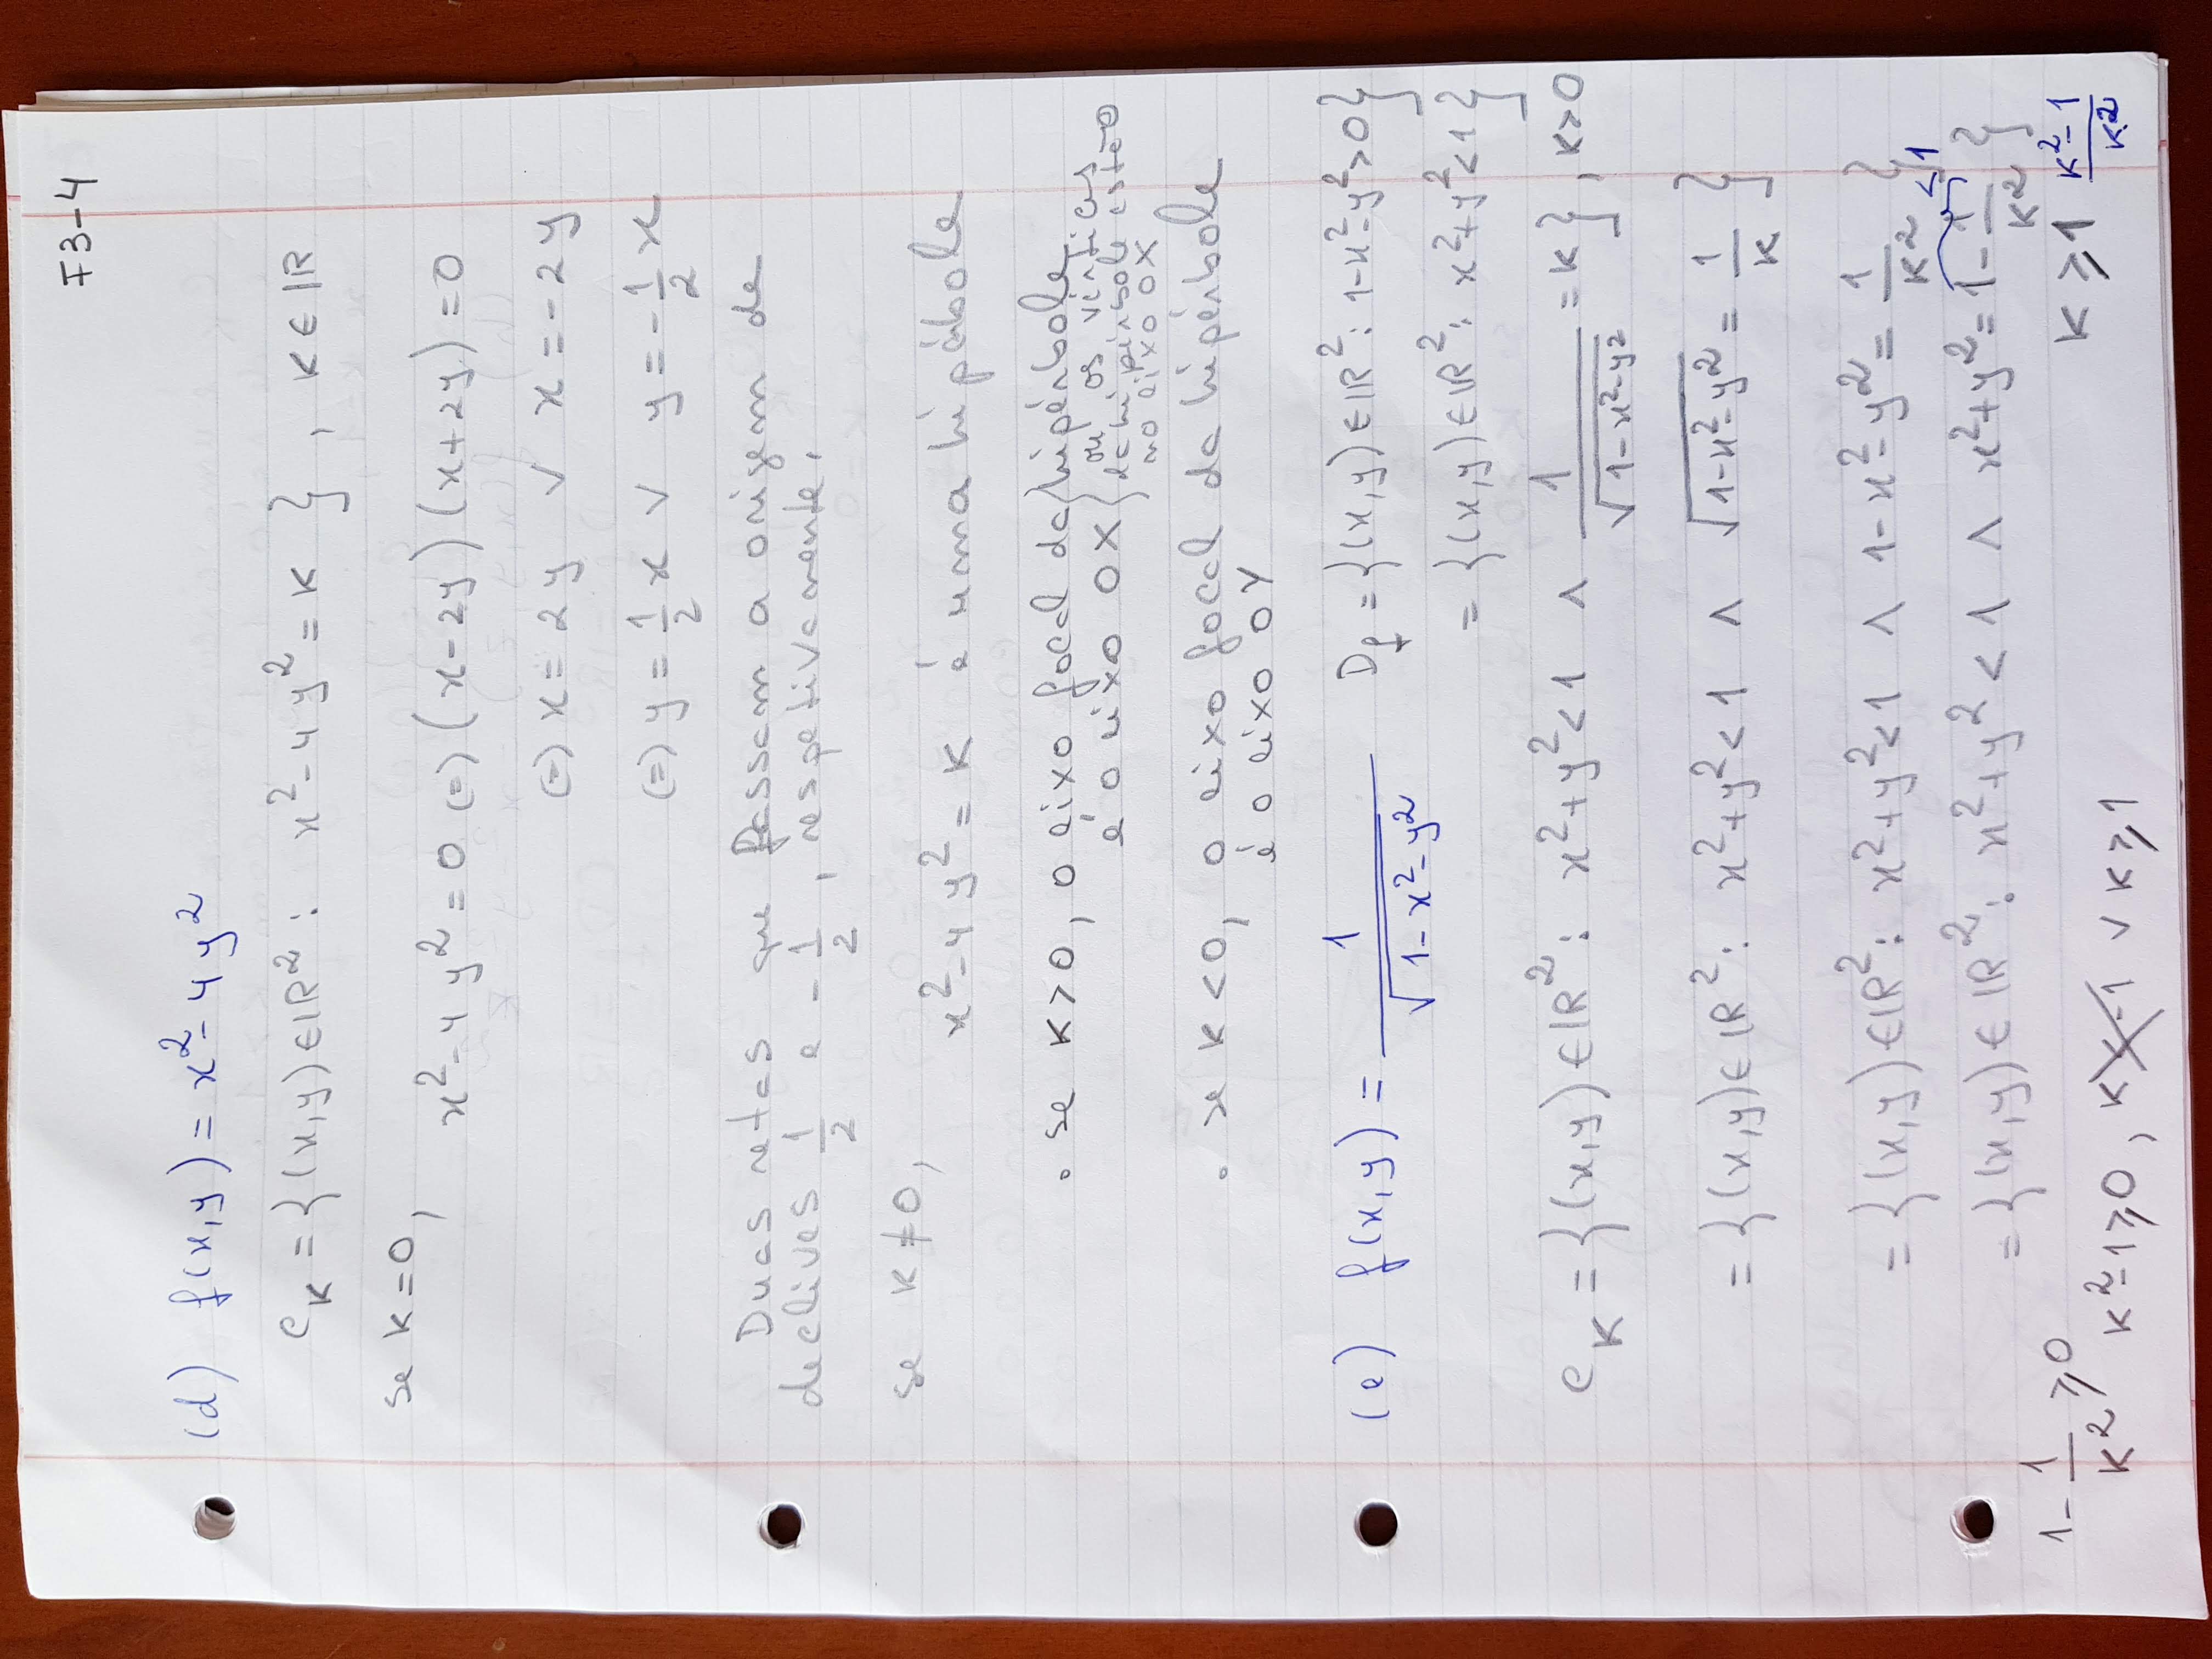 F3-4
(d) f(x,y) = x² - 4y²
C_K = {(x,y) ∈ ℝ² : x² - 4y² = K } , K ∈ ℝ
se K = 0,
x² - 4y² = 0 (=) (x-2y) (x+2y) = 0
(=) x = 2y ∨ x = -2y
(=) y = 1/2 x ∨ y = -1/2 x
Duas retas que passam a origem de
declives 1/2 e -1/2, respetivamente.
se K ≠ 0,
x² - 4y² = K é uma hipérbole
• se K > 0, o eixo focal da hipérbole
é o eixo OX } ou os vértices
da hipérbole estão
no eixo OX
• se K < 0, o eixo focal da hipérbole
é o eixo OY
(e) f(x,y) = 1/√(1-x²-y²) D_f = {(x,y) ∈ ℝ² : 1-x²-y² > 0}
= {(x,y) ∈ ℝ² : x²+y² < 1}
C_K = {(x,y) ∈ ℝ² : x²+y² < 1 ∧ 1/√(1-x²-y²) = K} , K > 0
= {(x,y) ∈ ℝ² : x²+y² < 1 ∧ √(1-x²-y²) = 1/K }
= {(x,y) ∈ ℝ² : x²+y² < 1 ∧ 1-x²-y² = 1/K² }
< 1
= {(x,y) ∈ ℝ² : x²+y² < 1 ∧ x²+y² = 1 - 1/K² }
1 - 1/K² ⩾ 0
K ⩾ 1 (K²-1)/K²
K²-1 ⩾ 0 , K < -1 ∨ K ⩾ 1